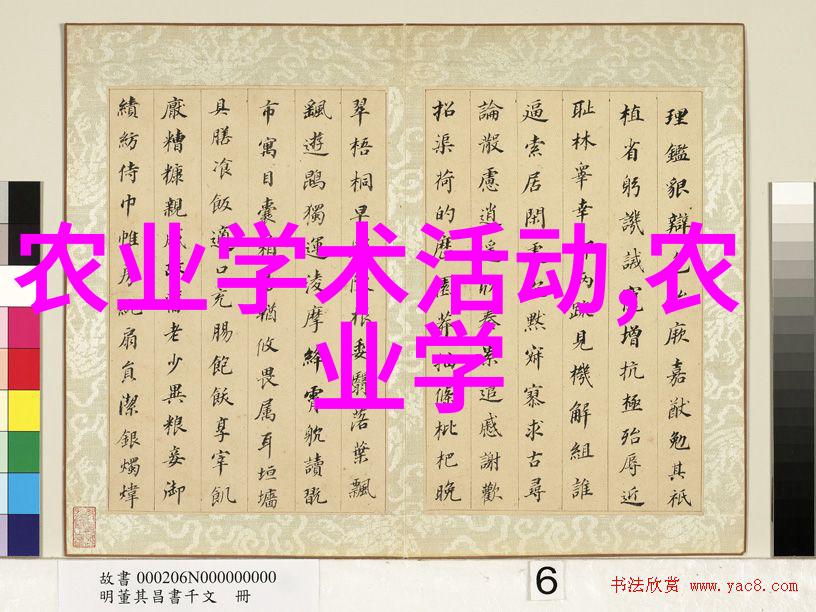 農业学术活动,农
业学
理鑑貌辯色厥嘉猷勉其祗
植省躬譏誡寵增抗極殆辱近
耻林睾幸兩疏見機解組誰
逼索居閑默寂寥求古尋
論散慮逍遥欣奏累遣慼謝歡
招渠荷的歷園莽抽條枇杷晚
翠梧桐早陳根委翳落葉飄
颻遊鵾獨運凌摩絳霄躭讀翫
市寓目囊箱輶攸畏属耳垣墻
具膳飡飯適口充腸飽飫享宰飢
厭糟糠親戚老少異粮妾御
績紡侍巾帷房紈扇員潔銀燭煒
故書 000206N000000000
明董其昌書千文 冊
6
书法欣赏 www.yac8.com